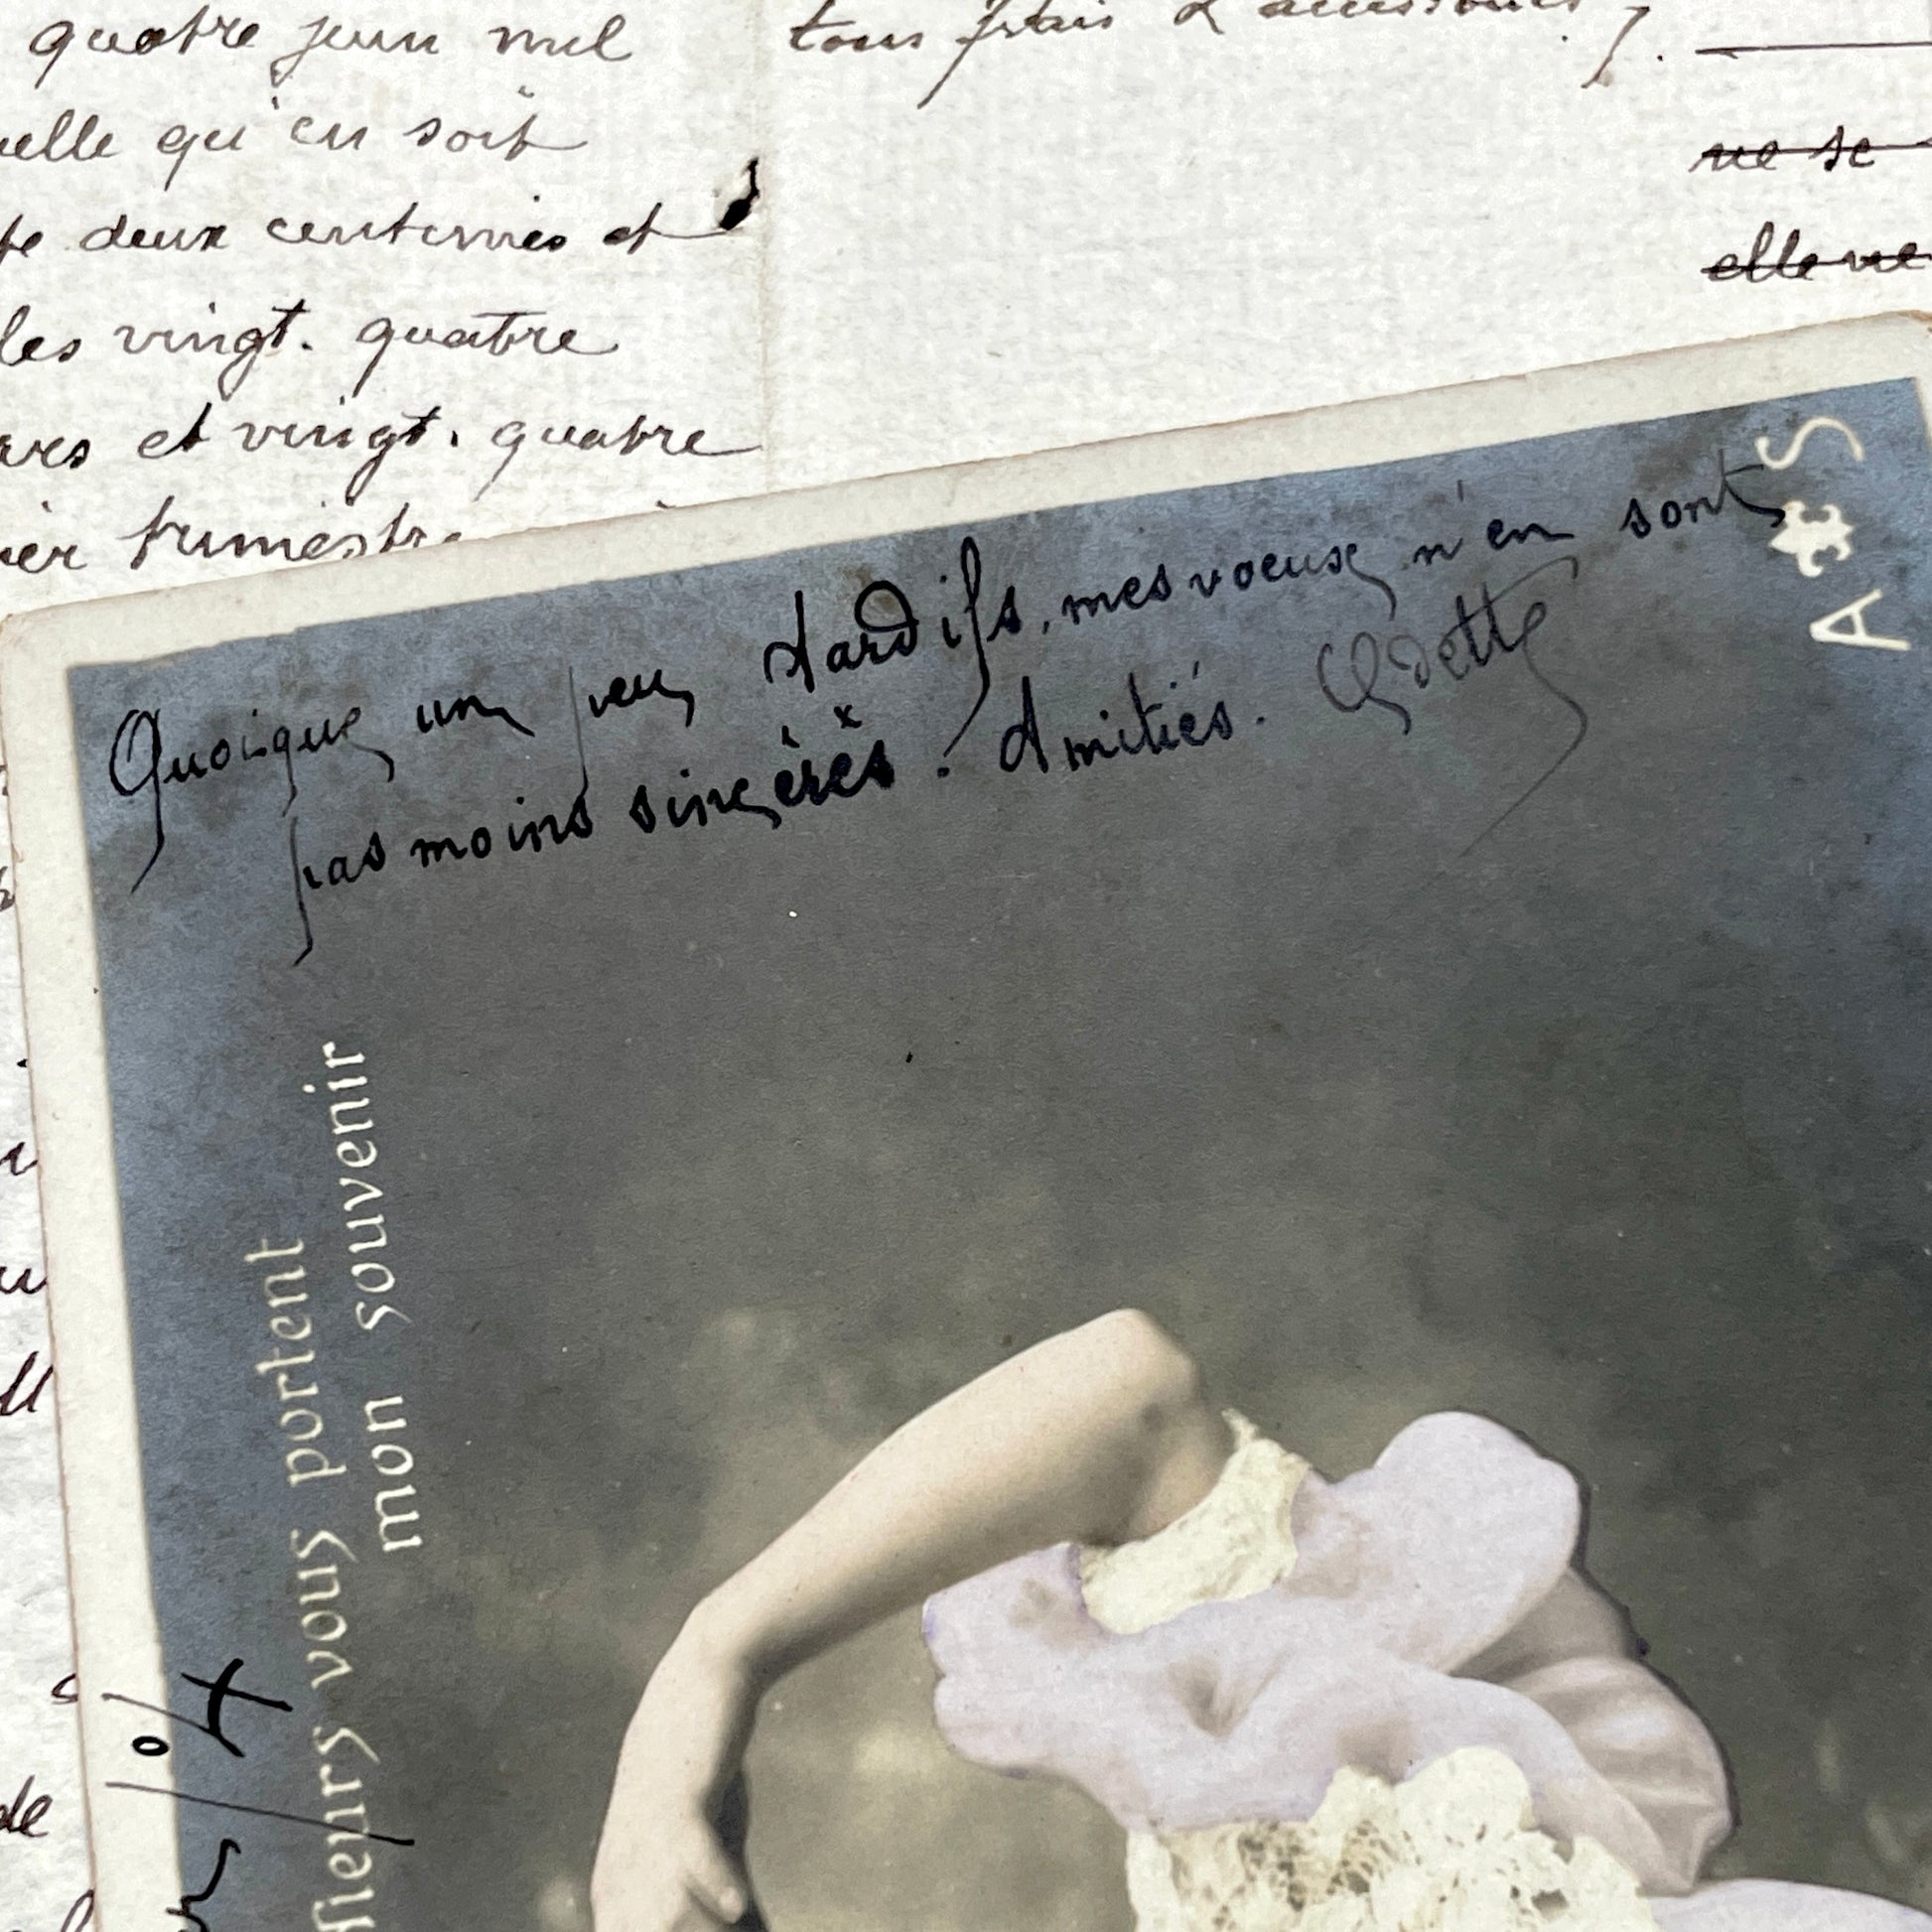 quatre juin mil
qu'en soit
deux centimes et
les vingt. quatre
et vingt. quatre
trimestre
tous frais & accessoires
ne se
elle ne
Quoique un peu tardifs, mes voeux n'en sont
pas moins sincères. Amitiés. Odette
A S
fleurs vous portent
mon souvenir
de